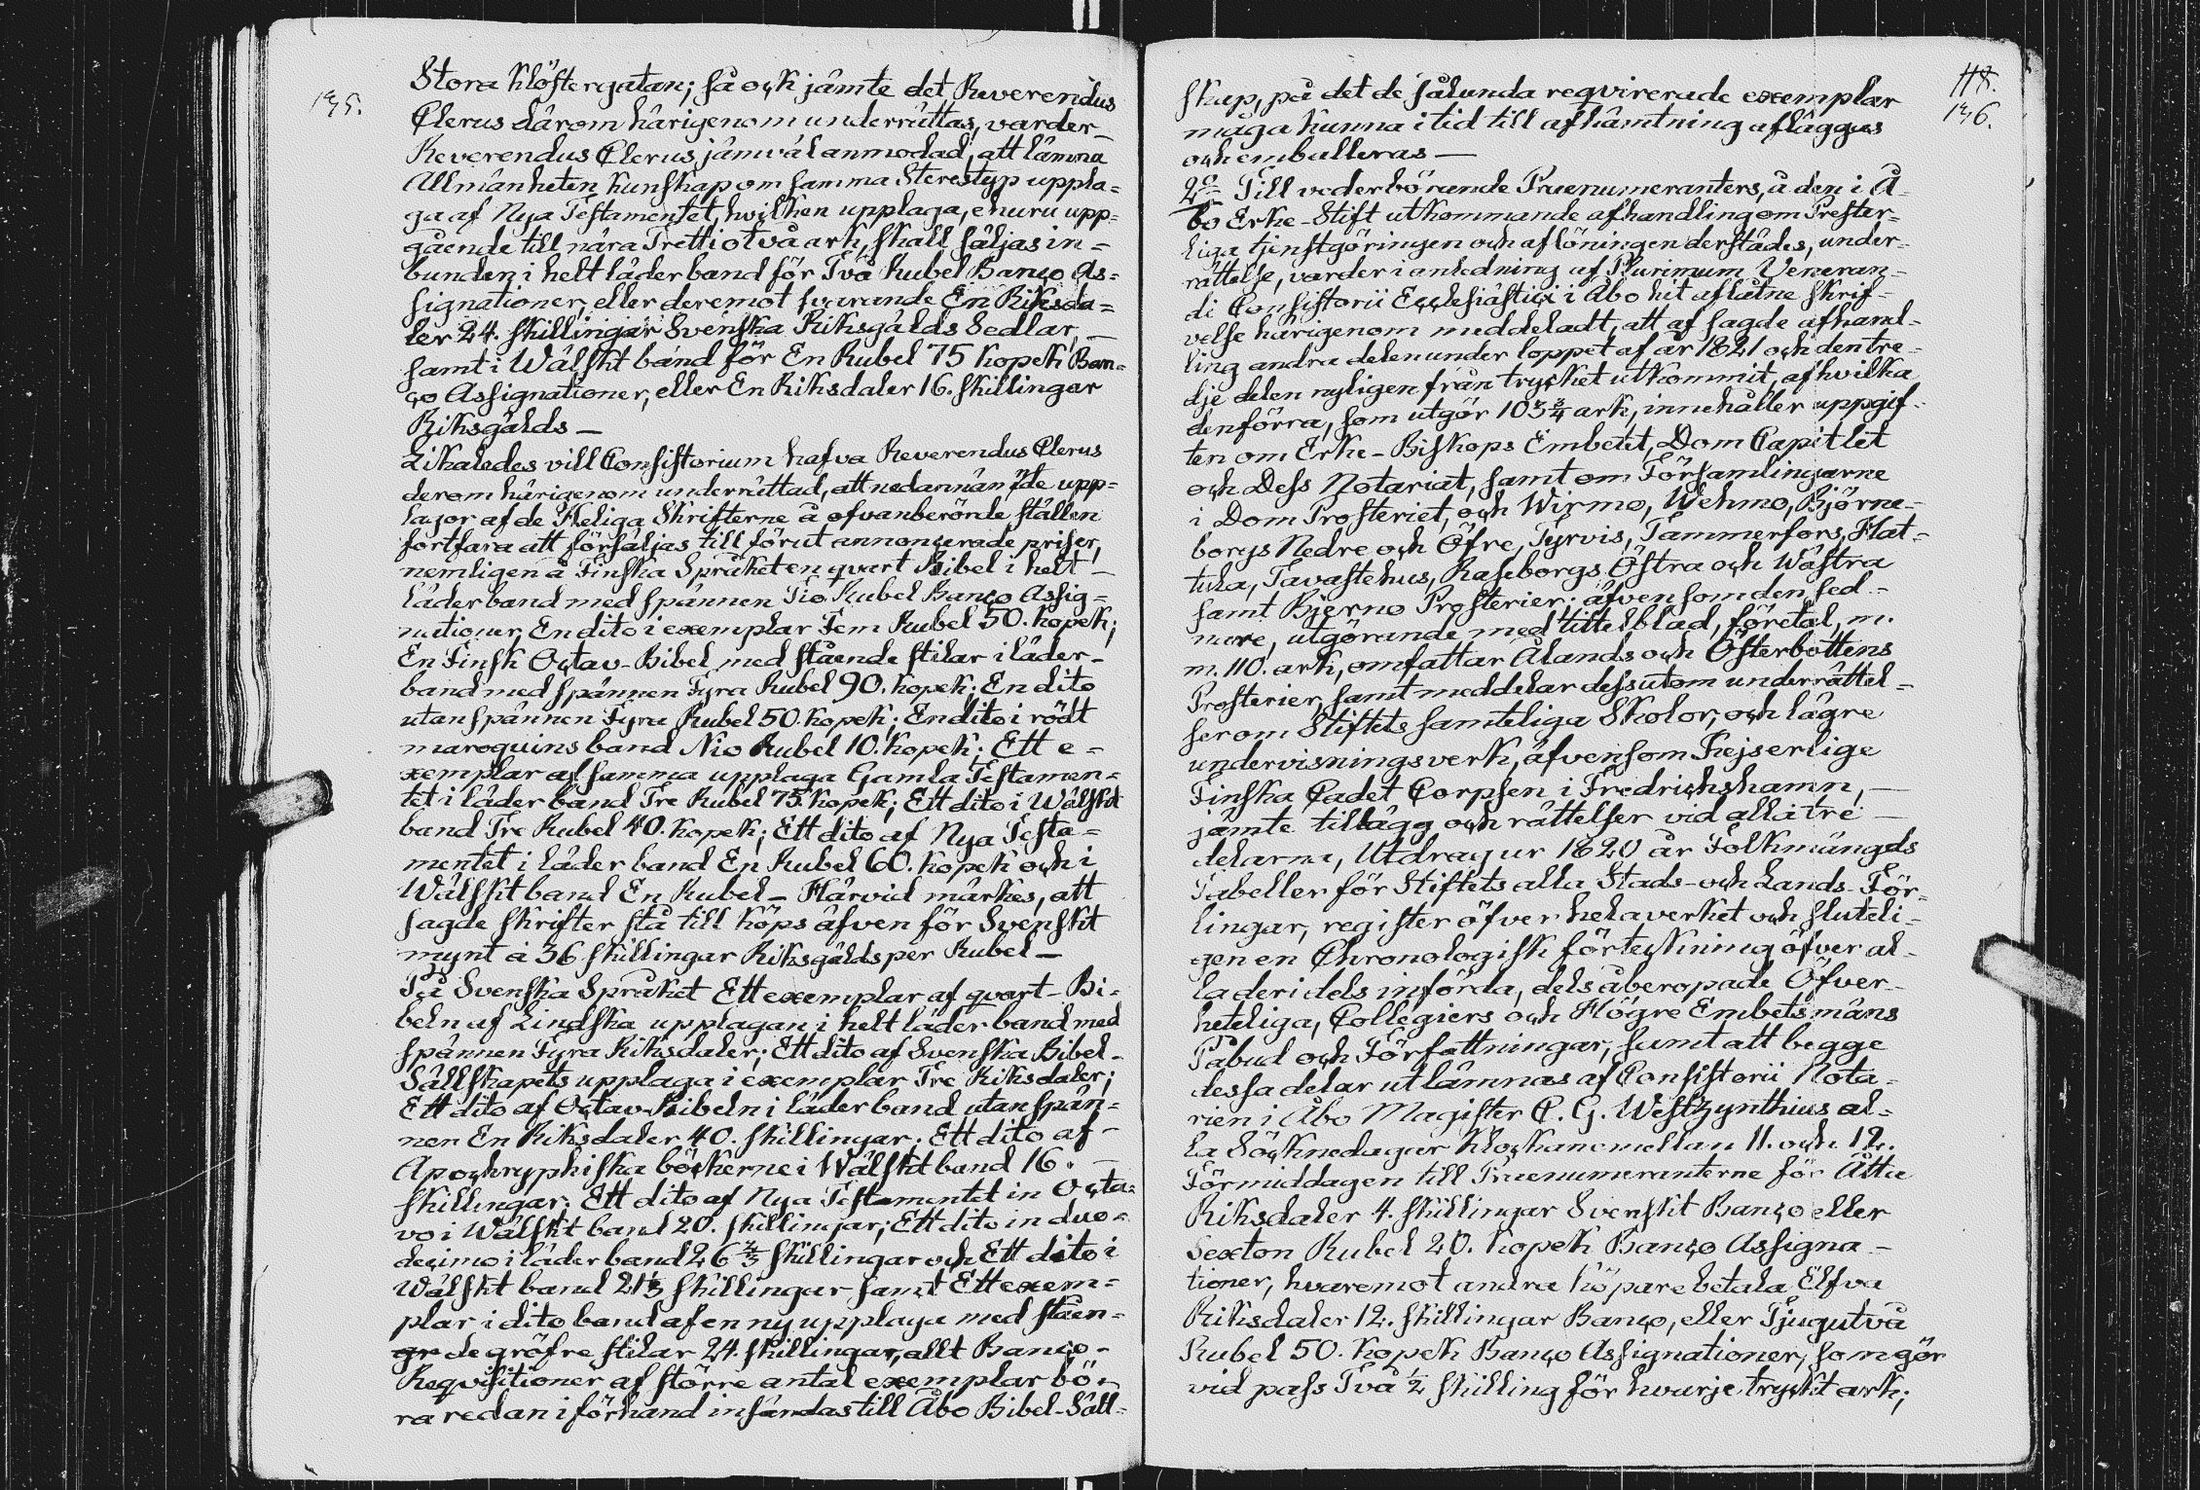 195.
Stora Klöstergatan; så ock jämte det Reverendus
Clerus därom härigenom underrättas, varder
Reverendus Clerus jämväl anmodad, att lämna
Allmänheten Kunskap om samma Stereotyp uppla=
ga af Nya Testamentet, hwilken upplaga, ehuru upp=
gående till nära Trettiotvå ark, skall säljas in=
bunden i helt läderband för Två Rubel Banco As=
signationer, eller deremot svarande En Riksda=
ler 24. skillingar Svenska Riksgälds Sedlar, —
samt i Wälskt band för En Rubel 75 Kopek Ban=
co Assignationer, eller En Riksdaler 16. skillingar
Riksgälds —
Likaledes vill Consistorium hafva Reverendus Clerus
derom härigenom underrättad, att nedannämde upp=
lagor af de Heliga Skrifterne å ofvanberörde ställen
fortfara att försäljas till förut annoncerade priser,
nemligen å Finska Språket en qvart Bibel i helt —
läderband med spännen Tio Rubel Banco Assig=
nationer, En dito i exemplar Fem Rubel 50. Kopek;
En Finsk Octav-Bibel med stående stilar i läder-
band med spännen Fyra Rubel 90. Kopek; En dito
utan spännen Fyra Rubel 50. Kopek; En dito i rödt
maroquins band Nio Rubel 10. Kopek; Ett e=
xemplar af samma upplaga Gamla Testamen=
tet i läderband Tre Rubel 75 Kopek; Ett dito i Wälskt
band Tre Rubel 40. Kopek; Ett dito af Nya Testa=
mentet i läder band En Rubel 60. Kopek och i
Wälskt band En Rubel — Härvid märkes, att
sagde skrifter stå till köps äfven för Svenskt
mynt à 36 skillingar Riksgälds per Rubel —
På Svenska Språket Ett exemplar af qvart-Bi=
beln af Lindska upplagan i helt läder band med
spännen Fyra Riksdaler; Ett dito af Svenska Bibel-
Sällskapets upplaga i exemplar Tre Riksdaler;
Ett dito af Octav-Bibeln i läder band utan spän=
nen En Riksdaler 40. skillingar; Ett dito af —
Apochryphiska böckerne i Wälskt band 16. —
skillingar; Ett dito af Nya Testamentet in Octa=
vo i Wälskt band 20. skillingar; Ett dito in duo=
decimo i läder band 26 2/3 skillingar och Ett dito i
Wälskt band 21 1/3 skillingar samt Ett exem=
plar i dito band af en ny upplaga med ståen=
de gröfre stilar 24 skillingar, allt Banco -
Reqvisitioner af större antal exemplar bö=
ra redan i förhand insändas till Åbo Bibel-Säll=
118.
196.
skap, på det de sålunda reqvirerade exemplar
måga kunna i tid till afhämtning afläggas
och emballeras —
2o Till vederbörande Praenumeranters, å den i Å-
bo Erke-Stift utkommande afhandling om Prester=
liga tjenstgöringen och aflöningen derstädes, under=
rättelse, varder i anledning af Plurimum Veneran=
di Consistorii Ecclesiastici i Åbo hit aflåtne skrif=
velse härigenom meddeladt, att af sagde afhand=
ling andra delen under loppet af år 1821 och den tre=
dje delen nyligen från trycket utkommit, af hvilka
den förra, som utgör 103 3/4 ark, innehåller uppgif=
ten om Erke-Biskops Embetet, Dom Capitlet
och Dess Notariat, samt om Församlingarne
i Dom Prosteriet, och Wirmo, Wehmo, Björne=
borgs Nedre och Öfre, Tyrvis, Tammerfors, Hat=
tula, Tavastehus, Raseborgs Östra och Wästra
samt Bjerno Prosterier; äfvensom den sed=
nare, utgörande med tittelblad, företal, m.
m. 110. ark, omfattar Ålands och Österbottens
Prosterier, samt meddelar dessutom underrättel=
ser om Stiftets samteliga Skolor, och lägre
undervisningsverk, äfvensom Kejserlige
Finska Cadet Corpsen i Fredrichshamn, —
jämte tillägg och rättelser vid alla tre —
delarne, Utdrag ur 1820 år Folkmängds
Tabeller för Stiftets alla Stads- och Lands-För-
lingar, register öfver hela verket och sluteli=
gen en Chronologisk förteckning öfver al=
la deri dels införda, dels åberopade Öfver-
heteliga, Collegiers och Högre Embetsmäns
Påbud och Författningar, samt att begge
dessa delar utlämnas af Consistorii Nota=
rien i Åbo Magister C. G. Westzynthius al=
la Söcknedagar klockan emellan 11. och 12.
Förmiddagen till Praenumeranterne för Åtta
Riksdaler 4. skillingar Svenskt Banco eller
Sexton Rubel 20. Kopek Banco Assigna-
tioner, hvaremot andra köpare betala Elfva
Riksdaler 12. skillingar Banco, eller Tjugutvå
Rubel 50. Kopek Banco Assignationer, som gör
vid pass Två 1/2 skilling för hvarje tryckt ark;